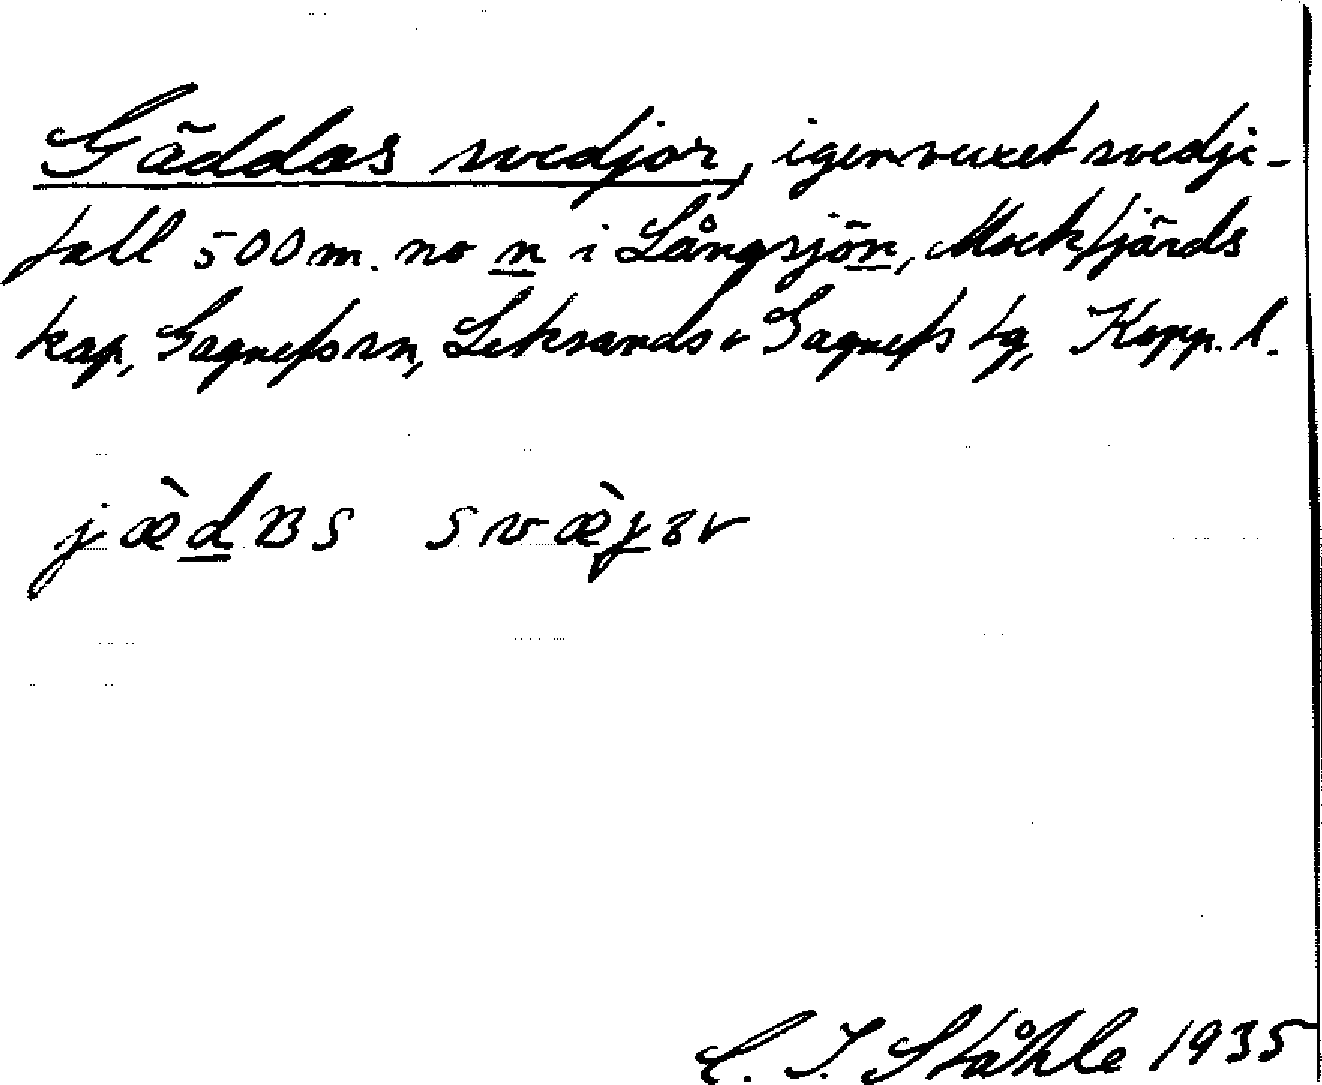 Gäddas svedjor, igenvuxet svedje-
fall 500 m. no n i Långsjön, Mockfjärds
kap, Gagnefs sn, Leksands o Gagnefs tg, Kopp. l.
jæ̀dʙs svæ̀jɜr
C. I. Ståhle 1935